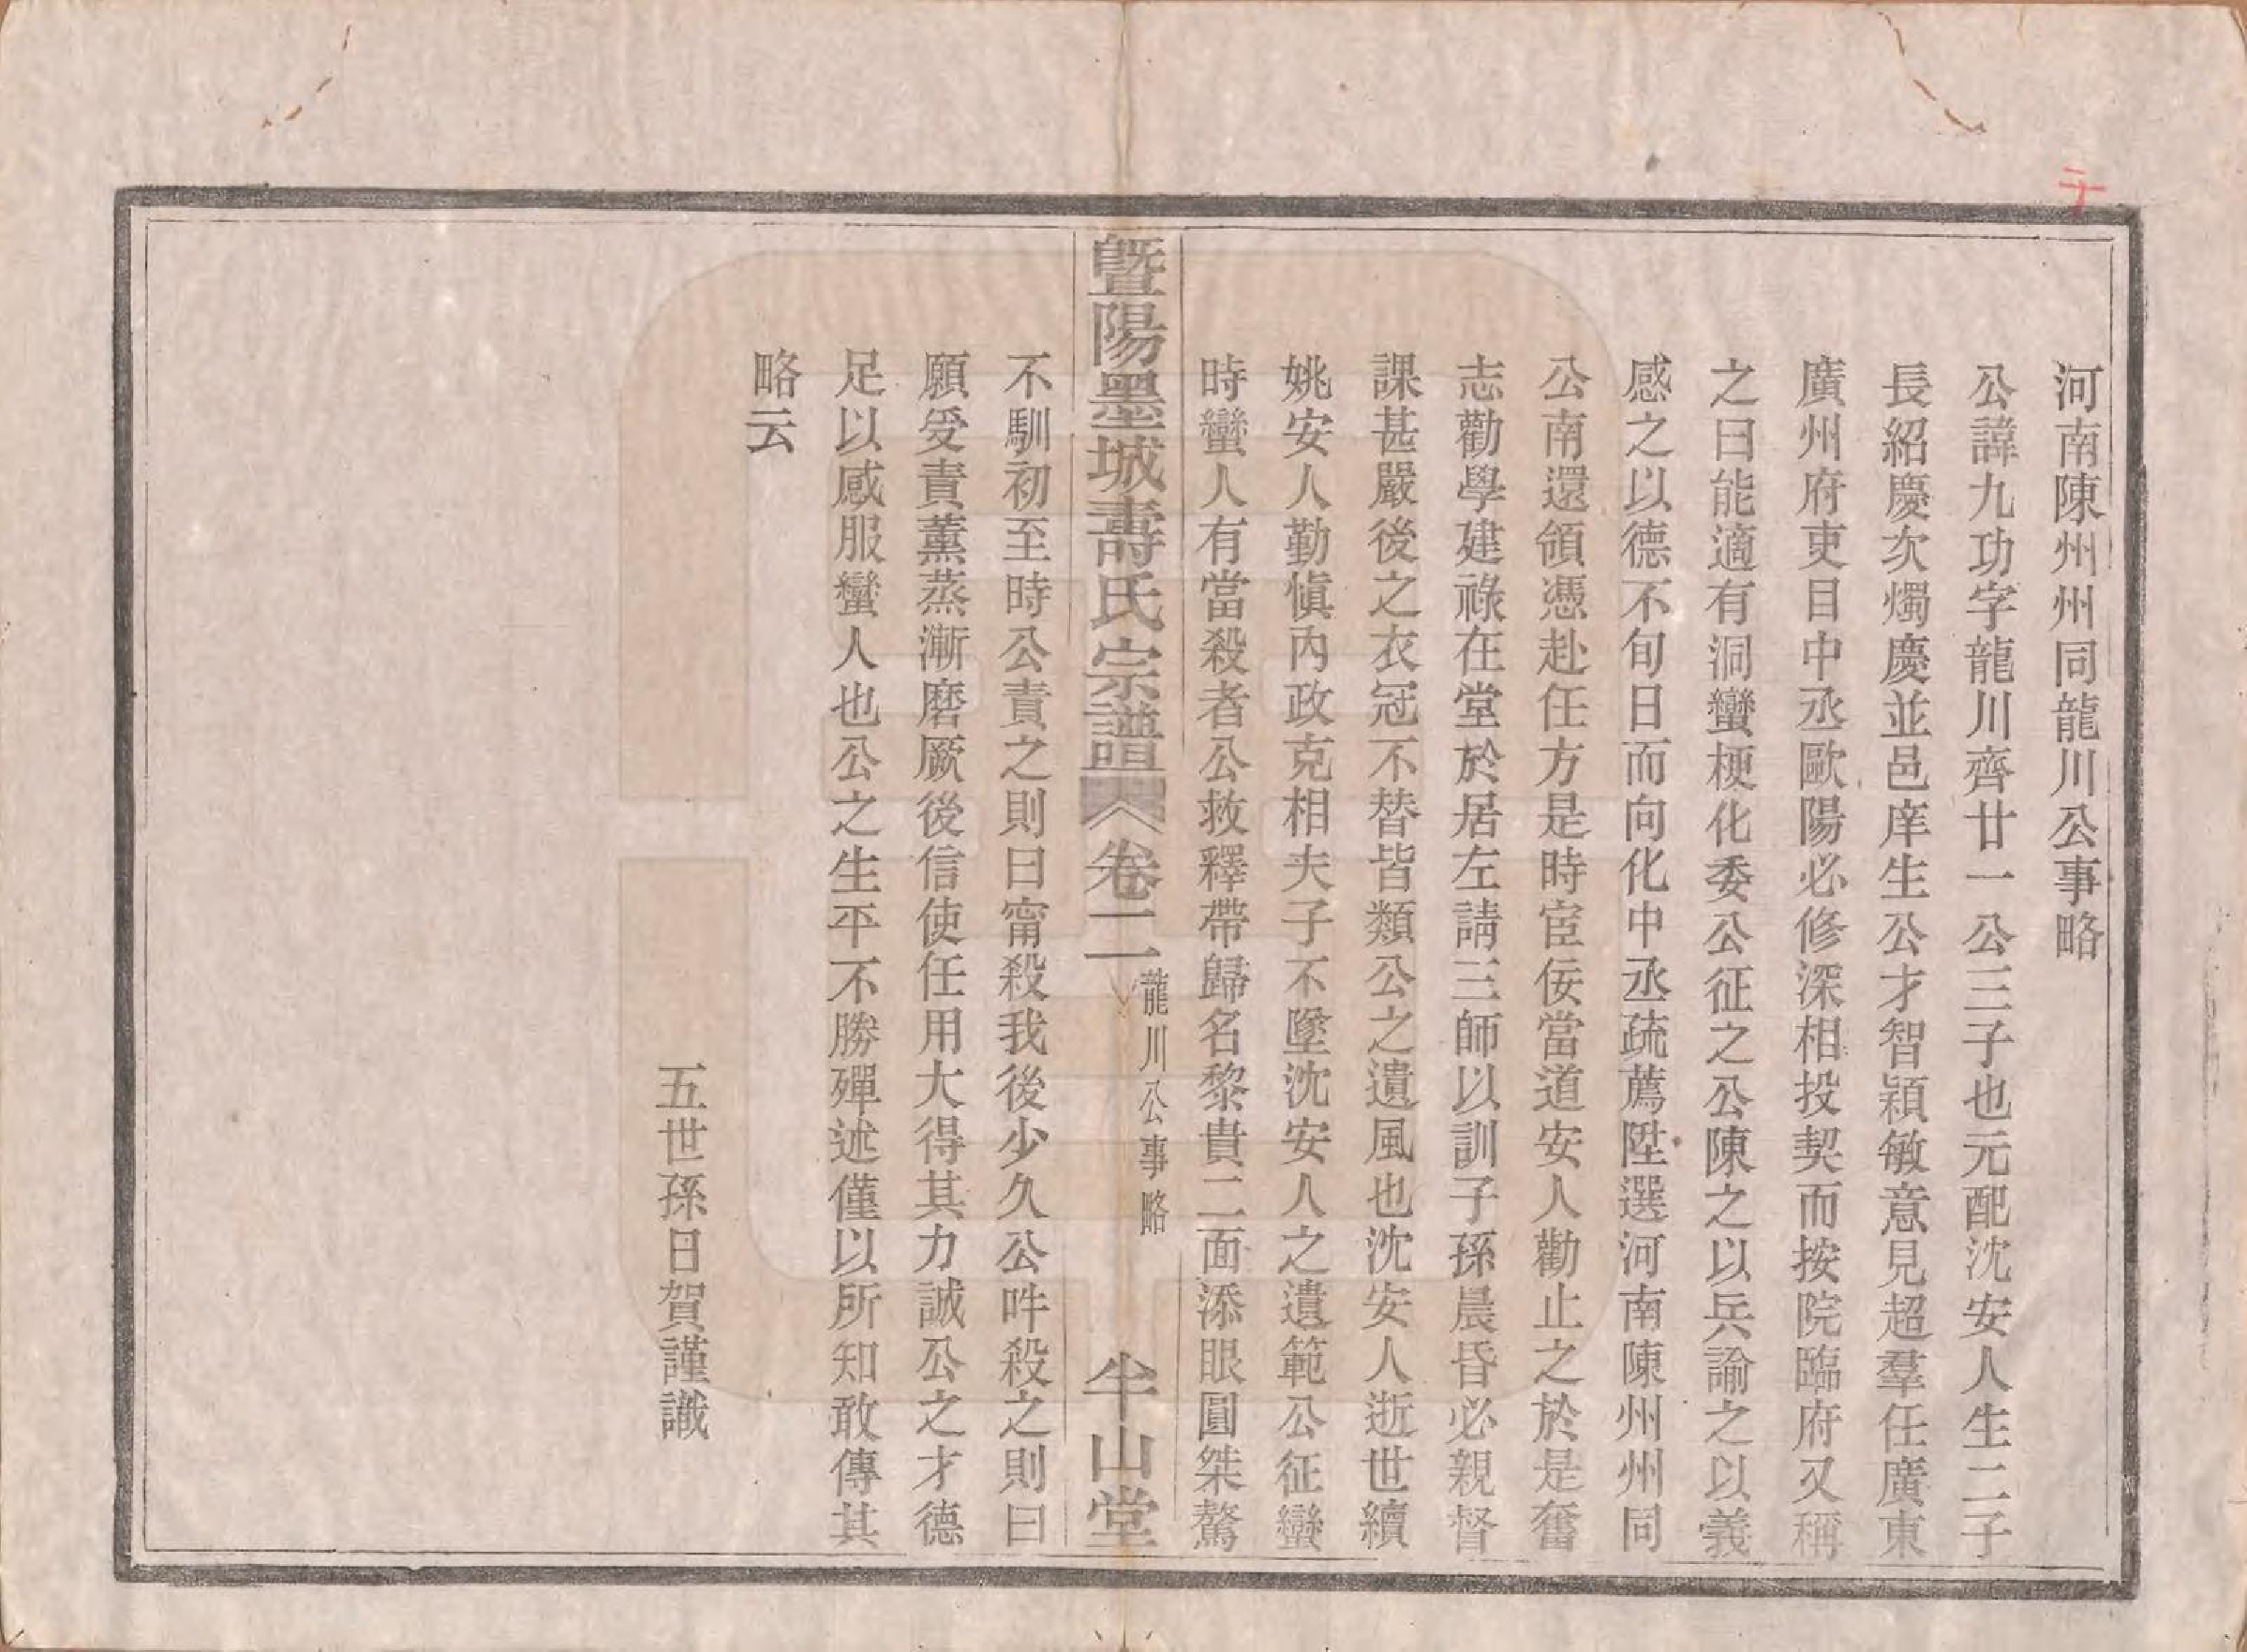 河南陳州州同龍川公事略
公諱九功字龍川齊廿一公三子也元配沈安人生二子
長紹慶次燭慶並邑庠生公才智穎敏意見超羣任廣東
廣州府吏目中丞歐陽必修深相投契而按院臨府又稱
之曰能適有洞蠻梗化委公征之公陳之以兵諭之以義
感之以德不旬日而向化中丞疏薦陞選河南陳州州同
公南還領憑赴任方是時宦佞當道安人勸止之於是奮
志勸學建祿在堂於居左請三師以訓子孫晨昏必親督
課甚嚴後之衣冠不替皆類公之遺風也沈安人逝世續
姚安人勤愼內政克相夫子不墜沈安人之遺範公征蠻
時蠻人有當殺者公救釋帶歸名黎貴二面添眼圓桀驁
暨陽墨城壽氏宗譜 卷二 龍川公事略 半山堂
不馴初至時公責之則曰甯殺我後少久公吽殺之則曰
願受責薰蒸漸磨厥後信使任用大得其力誠公之才德
足以感服蠻人也公之生平不勝殫述僅以所知敢傳其
略云
五世孫日賀謹識